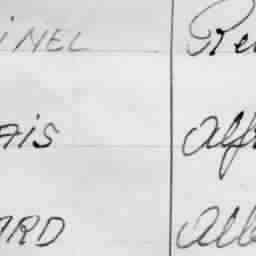 INEL Re
AIS Alf
ARD Alb